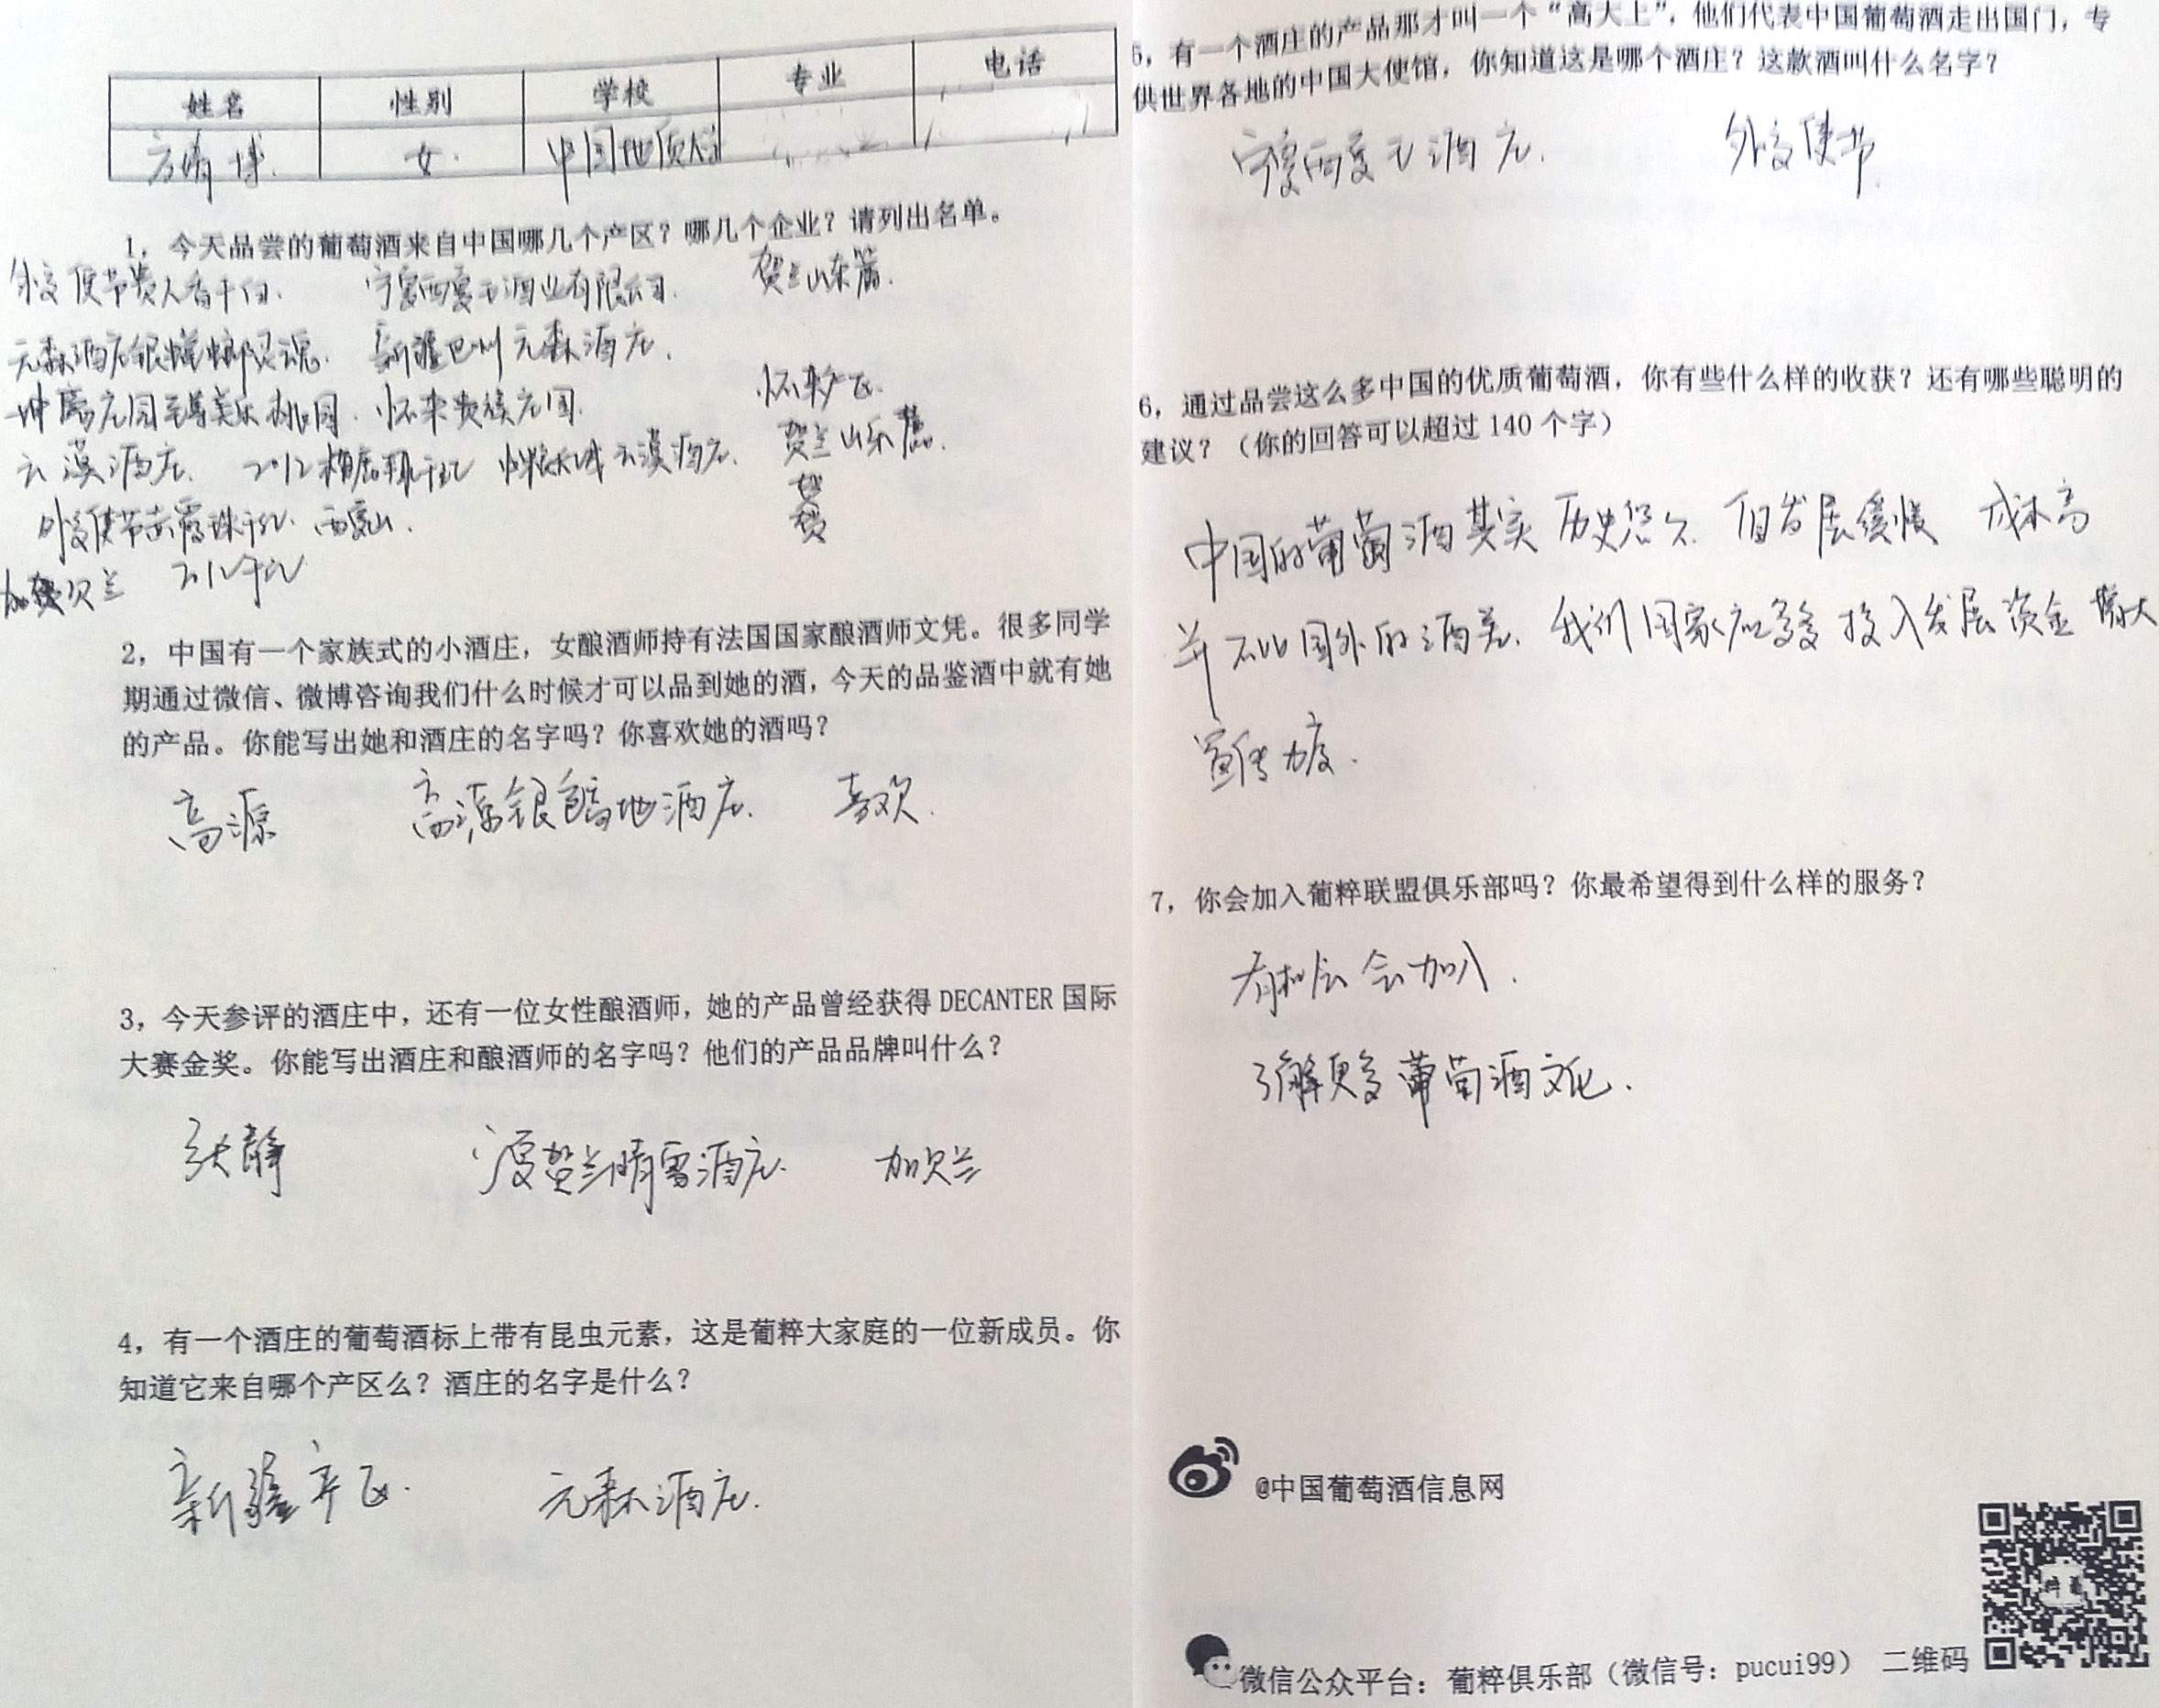 姓名 性别 学校 专业 电话
女. 中国地质大
1，今天品尝的葡萄酒来自中国哪几个产区？哪几个企业？请列出名单。
外交使节贵人香干白. 宁夏西夏王酒业有限公司. 贺兰山东麓.
元森酒庄银螳螂灵魂. 新疆巴州元森酒庄.
庄园至尊美乐桃园. 怀来贵族庄园. 怀来产区.
云漠酒庄. 2012 云漠酒庄. 贺兰山东麓.
外交使节赤霞珠干红. 西夏王.
加贝兰 2012干红
2，中国有一个家族式的小酒庄，女酿酒师持有法国国家酿酒师文凭。很多同学
期通过微信、微博咨询我们什么时候才可以品到她的酒，今天的品鉴酒中就有她
的产品。你能写出她和酒庄的名字吗？你喜欢她的酒吗？
高源 高源银色高地酒庄. 喜欢.
3，今天参评的酒庄中，还有一位女性酿酒师，她的产品曾经获得 DECANTER 国际
大赛金奖。你能写出酒庄和酿酒师的名字吗？他们的产品品牌叫什么？
张静 宁夏贺兰晴雪酒庄. 加贝兰
4，有一个酒庄的葡萄酒标上带有昆虫元素，这是葡粹大家庭的一位新成员。你
知道它来自哪个产区么？酒庄的名字是什么？
新疆产区. 元森酒庄.
5，有一个酒庄的产品那才叫一个“高大上”，他们代表中国葡萄酒走出国门，专
供世界各地的中国大使馆，你知道这是哪个酒庄？这款酒叫什么名字？
宁夏西夏王酒庄. 外交使节.
6，通过品尝这么多中国的优质葡萄酒，你有些什么样的收获？还有哪些聪明的
建议？（你的回答可以超过 140 个字）
中国的葡萄酒其实历史悠久 但发展缓慢 成本高
并不比国外的酒差. 我们国家应多多投入发展资金 增大
宣传力度.
7，你会加入葡粹联盟俱乐部吗？你最希望得到什么样的服务？
有机会会加入.
了解更多葡萄酒文化.
@中国葡萄酒信息网
微信公众平台：葡粹俱乐部（微信号：pucui99） 二维码